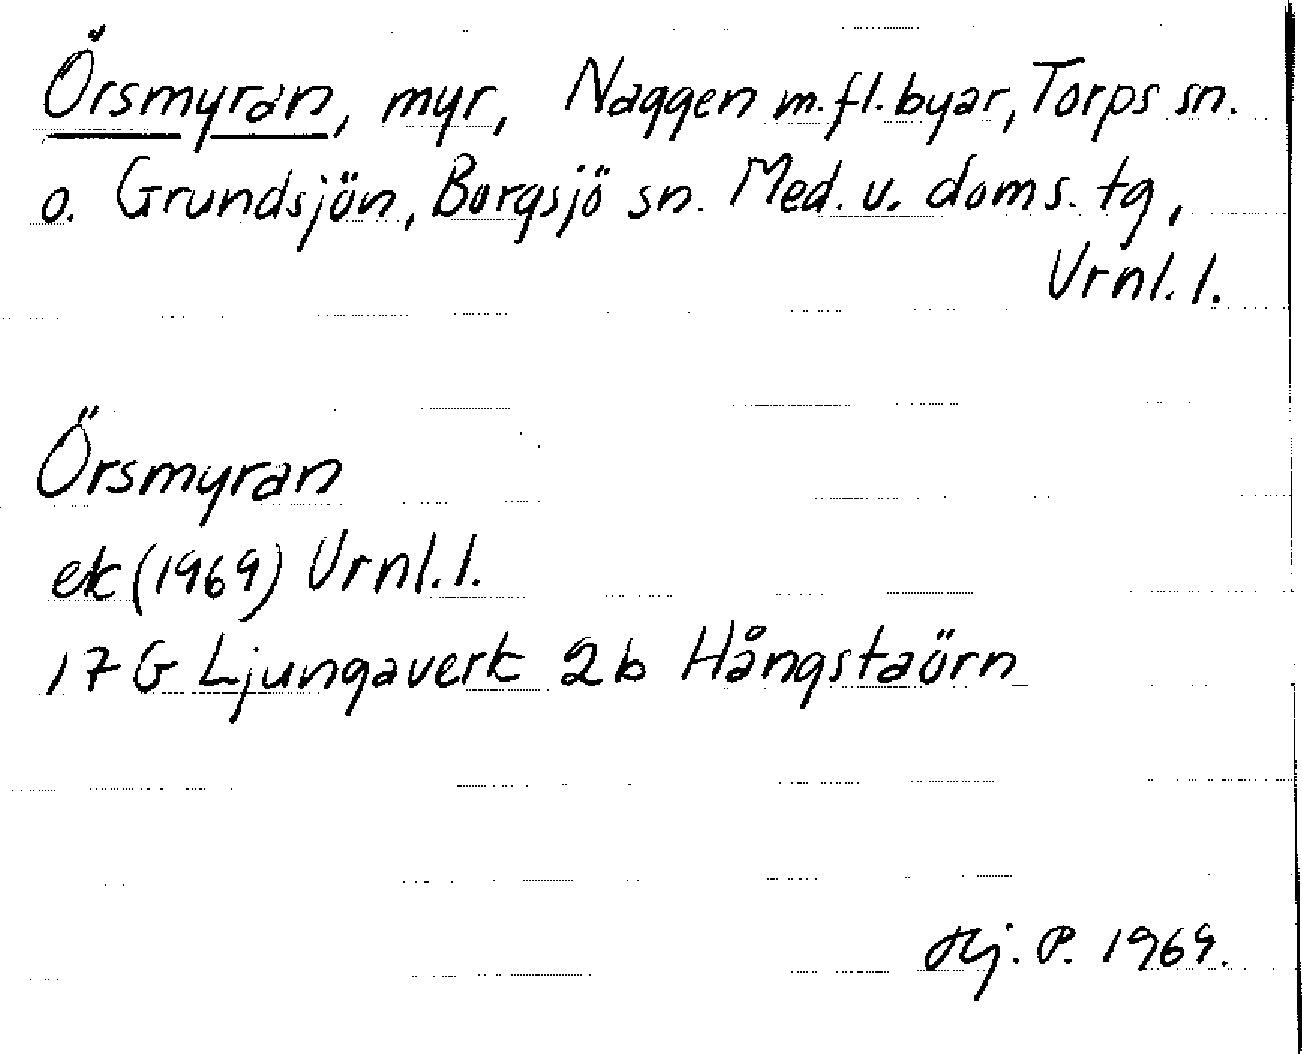 Örsmyran, myr, Naggen m.fl. byar, Torps sn.
o. Grundsjön, Borgsjö sn. Med. v. doms. tg,
Vrnl. l.
Örsmyran
ek (1969) Vrnl. l.
17 G Ljungaverk 2b Hångstaörn
Hj. P. 1969.